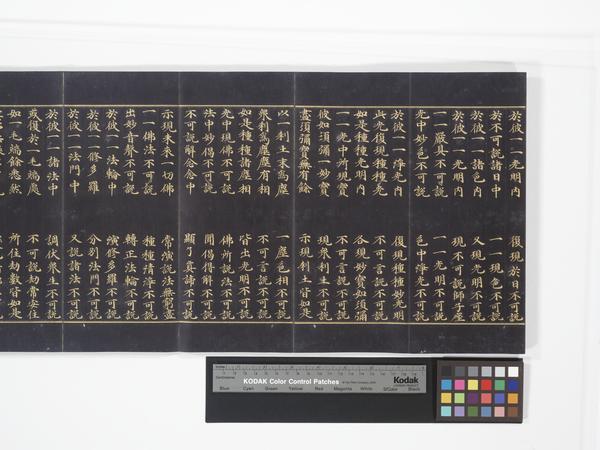 於彼一一光明內　復現於日不可說
於不可說諸日中　一一現色不可說
於彼一一諸色內　又現光明不可說
於彼一一光明內　現不可說師子座
一一嚴具不可說　一一光明不可說
光中妙色不可說　色中淨光不可說
於彼一一淨光內　復現種種妙光明
此光復現種種光　不可言說不可說
如是種種光明內　各現妙寶如須彌
一一光中所現寶　不可言說不可說
彼如須彌一妙寶　現眾剎土不可說
盡須彌寶無有餘　示現剎土皆如是
以一剎土末為塵　一塵色相不可說
眾剎為塵塵有相　不可言說不可說
如是種種諸塵相　皆出光明不可說
光中現佛不可說　佛所說法不可說
法中妙偈不可說　聞偈得解不可說
不可說解念念中　顯了真諦不可說
示現未來一切佛　常演說法無窮盡
一一佛法不可說　種種清淨不可說
出妙音聲不可說　轉正法輪不可說
於彼一一法輪中　演修多羅不可說
於彼一一修多羅　分別法門不可說
於彼一一法門中　又說諸法不可說
於彼一一諸法中　調伏眾生不可說
或復於一毛端處　不可說劫常安住
如一毛端餘悉然　所住劫數皆如是
KODAK Color Control Patches
Kodak
Blue Cyan Green Yellow Red Magenta White 3/Color Black